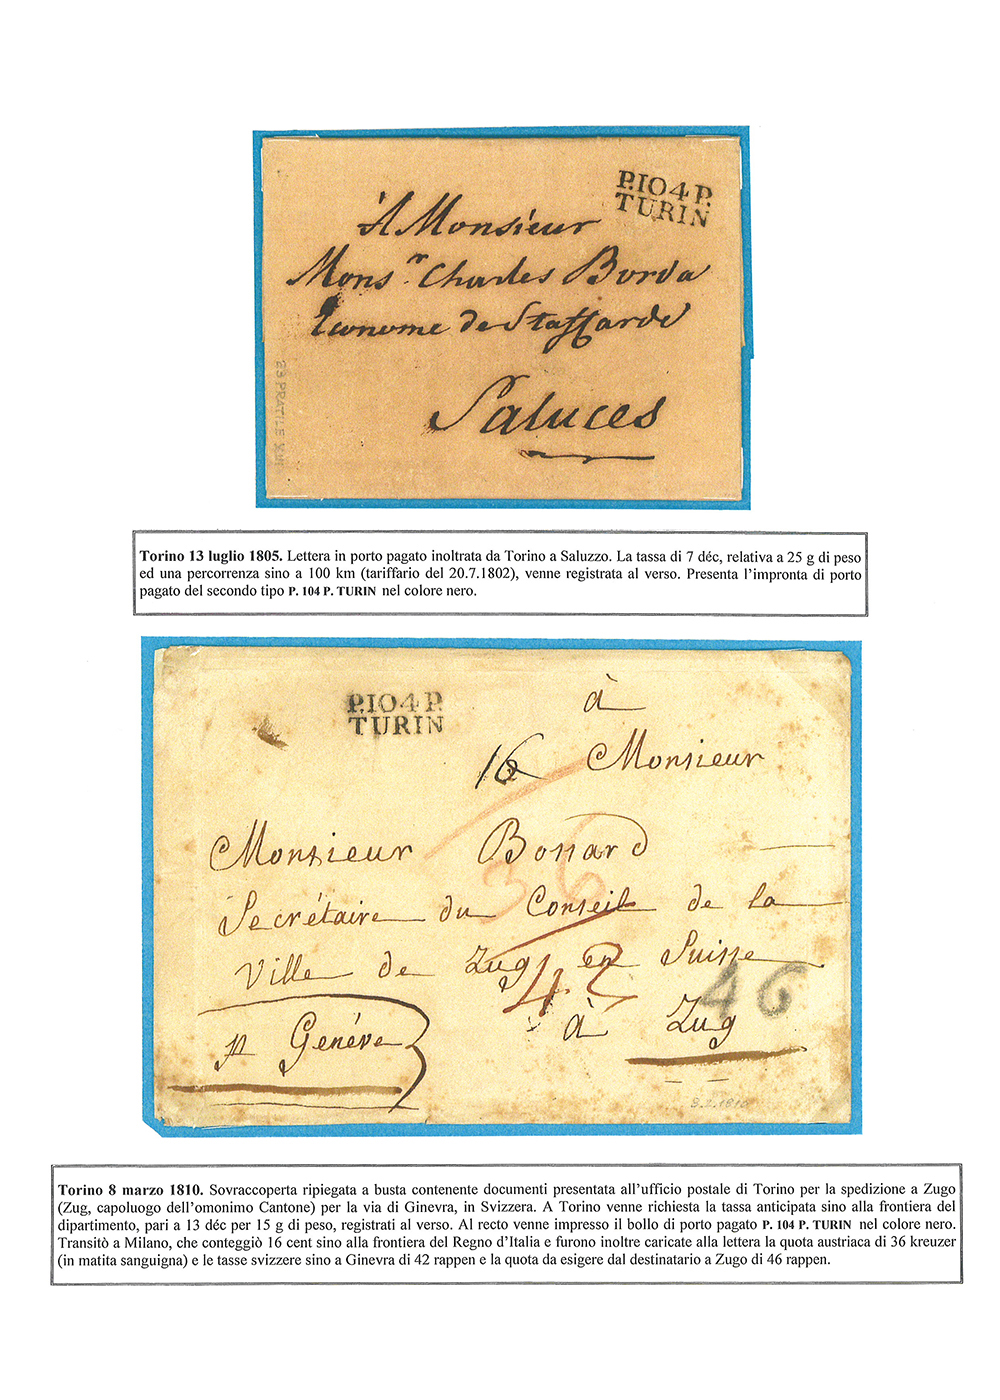 P.104 P.
TURIN
A Monsieur
Monsr. Charles Borda
Econome de Staffarde
Saluces
Torino 13 luglio 1805. Lettera in porto pagato inoltrata da Torino a Saluzzo. La tassa di 7 déc, relativa a 25 g di peso
ed una percorrenza sino a 100 km (tariffario del 20.7.1802), venne registrata al verso. Presenta l’impronta di porto
pagato del secondo tipo P. 104 P. TURIN nel colore nero.
P.104 P.
TURIN
à
16 Monsieur
Monsieur Bossard
36
Secrétaire du Conseil de la
Ville de Zug en Suisse
42 46
à Zug
p Genéve
Torino 8 marzo 1810. Sovraccoperta ripiegata a busta contenente documenti presentata all’ufficio postale di Torino per la spedizione a Zugo
(Zug, capoluogo dell’omonimo Cantone) per la via di Ginevra, in Svizzera. A Torino venne richiesta la tassa anticipata sino alla frontiera del
dipartimento, pari a 13 déc per 15 g di peso, registrati al verso. Al recto venne impresso il bollo di porto pagato P. 104 P. TURIN nel colore nero.
Transitò a Milano, che conteggiò 16 cent sino alla frontiera del Regno d’Italia e furono inoltre caricate alla lettera la quota austriaca di 36 kreuzer
(in matita sanguigna) e le tasse svizzere sino a Ginevra di 42 rappen e la quota da esigere dal destinatario a Zugo di 46 rappen.